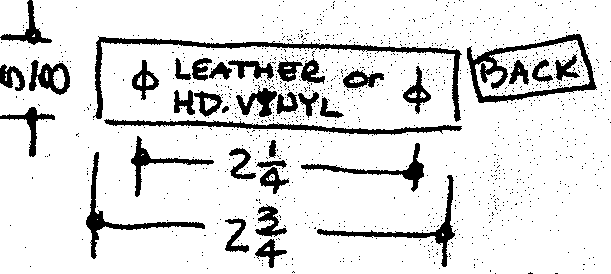 5/8
LEATHER or
HD. VINYL
BACK
2 1/4
2 3/4